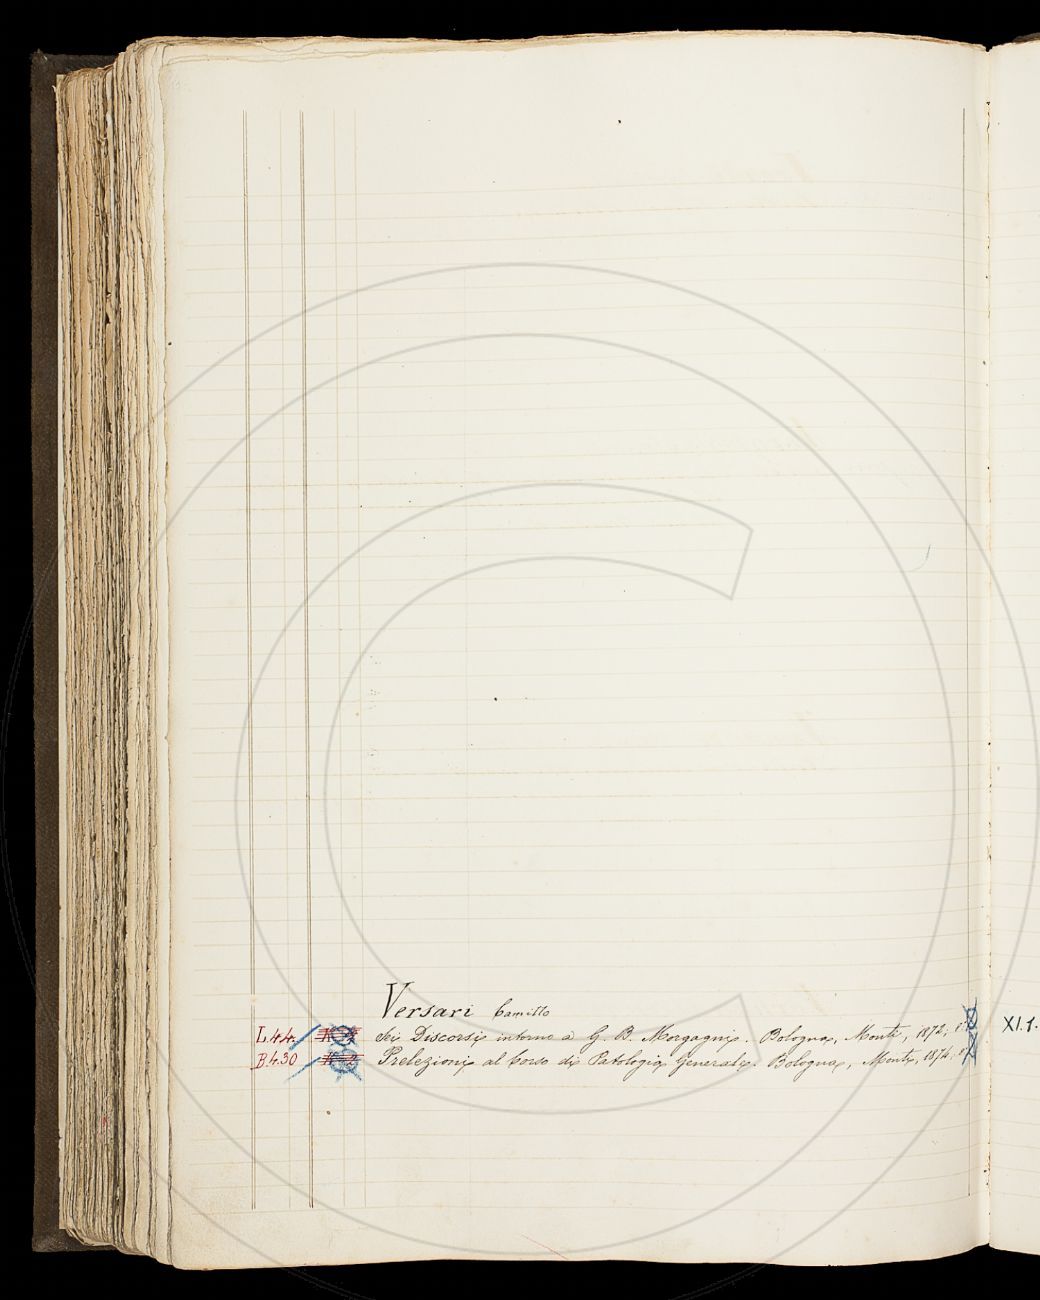 Versari Camillo
L.4.4. Sei Discorsi intorno a G. B. Morgagni. Bologna, Monti, 1872,
B.4.30 Prelezioni al Corso di Patologia Generale. Bologna, Monti, 1874,
XI.1.